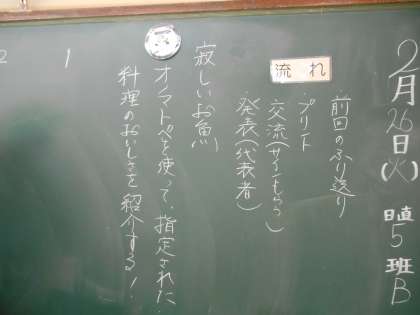 2月26日(火)
日直5班B
流れ
前回のふり返り
・プリント
・交流(サインもらう)
・発表(代表者)
寂しいお魚
オノマトペを使って、指定された
料理のおいしさを紹介する!
1
2